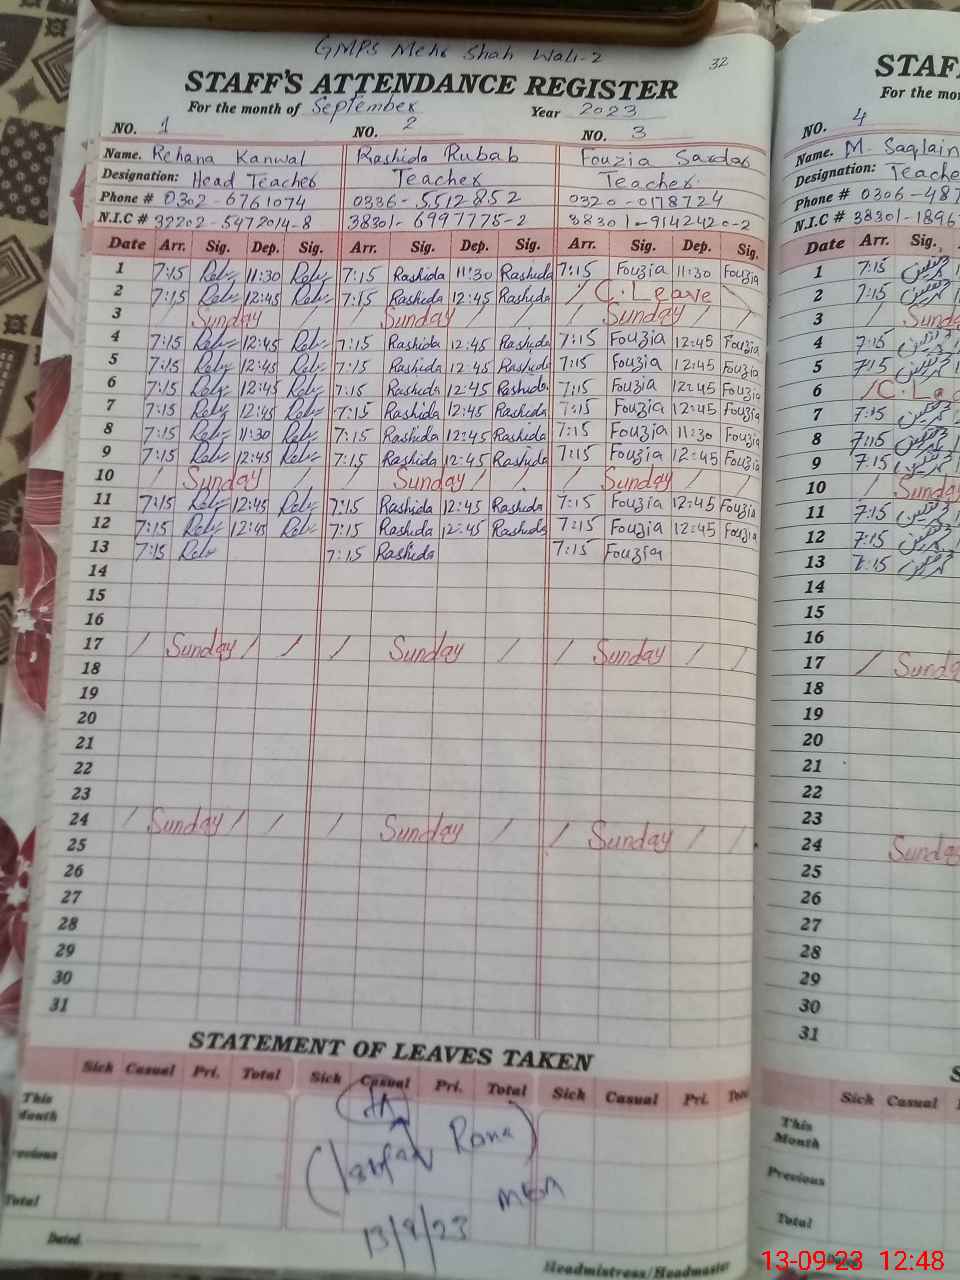 GMPS Mehr Shah Wali-2
32
STAFF'S ATTENDANCE REGISTER
For the month of September Year 2023
NO. 1 NO. 2 NO. 3
Name. Rehana Kanwal Rashida Rubab Fouzia Sardar
Designation: Head Teacher Teacher Teacher
Phone # 0302-6761074 0336-5512852 0320-0178724
N.I.C # 32202-5472014-8 38301-6997775-2 38301-9142420-2
Date Arr. Sig. Dep. Sig. Arr. Sig. Dep. Sig. Arr. Sig. Dep. Sig.
1 7:15 11:30 7:15 Rashida 11:30 Rashida 7:15 Fouzia 11:30 Fouzia
2 7:15 12:45 7:15 Rashida 12:45 Rashida / C. Leave \
3 / Sunday / / / Sunday / / / Sunday / /
4 7:15 12:45 7:15 Rashida 12:45 Rashida 7:15 Fouzia 12:45 Fouzia
5 7:15 12:45 7:15 Rashida 12:45 Rashida 7:15 Fouzia 12:45 Fouzia
6 7:15 12:45 7:15 Rashida 12:45 Rashida 7:15 Fouzia 12:45 Fouzia
7 7:15 12:45 7:15 Rashida 12:45 Rashida 7:15 Fouzia 12:45 Fouzia
8 7:15 11:30 7:15 Rashida 12:45 Rashida 7:15 Fouzia 11:30 Fouzia
9 7:15 12:45 7:15 Rashida 12:45 Rashida 7:15 Fouzia 12:45 Fouzia
10 / Sunday / / / Sunday / / / Sunday / /
11 7:15 12:45 7:15 Rashida 12:45 Rashida 7:15 Fouzia 12:45 Fouzia
12 7:15 12:45 7:15 Rashida 12:45 Rashida 7:15 Fouzia 12:45 Fouzia
13 7:15 7:15 Rashida 7:15 Fouzia
14
15
16
17 / Sunday / / / Sunday / / Sunday / /
18
19
20
21
22
23
24 / Sunday / / / Sunday / / Sunday / /
25
26
27
28
29
30
31
STATEMENT OF LEAVES TAKEN
Sick Casual Pri. Total Sick Casual Pri. Total Sick Casual Pri. Total
This Month
Previous
Total
Rana
MEA
13/9/23
Dated
Headmistress/Headmaster
STAF
For the mon
NO. 4
Name. M. Saqlain
Designation: Teache
Phone # 0306-487
N.I.C # 38301-1896
Date Arr. Sig.
1 7:15
2 7:15
3 / Sunda
4 7:15
5 7:15
6 / C. Lea
7 7:15
8 7:15
9 7:15
10 / Sunday
11 7:15
12 7:15
13 7:15
14
15
16
17 / Sunda
18
19
20
21
22
23
24 Sunda
25
26
27
28
29
30
31
S
Sick Casual
This Month
Previous
Total
13-09-23 12:48